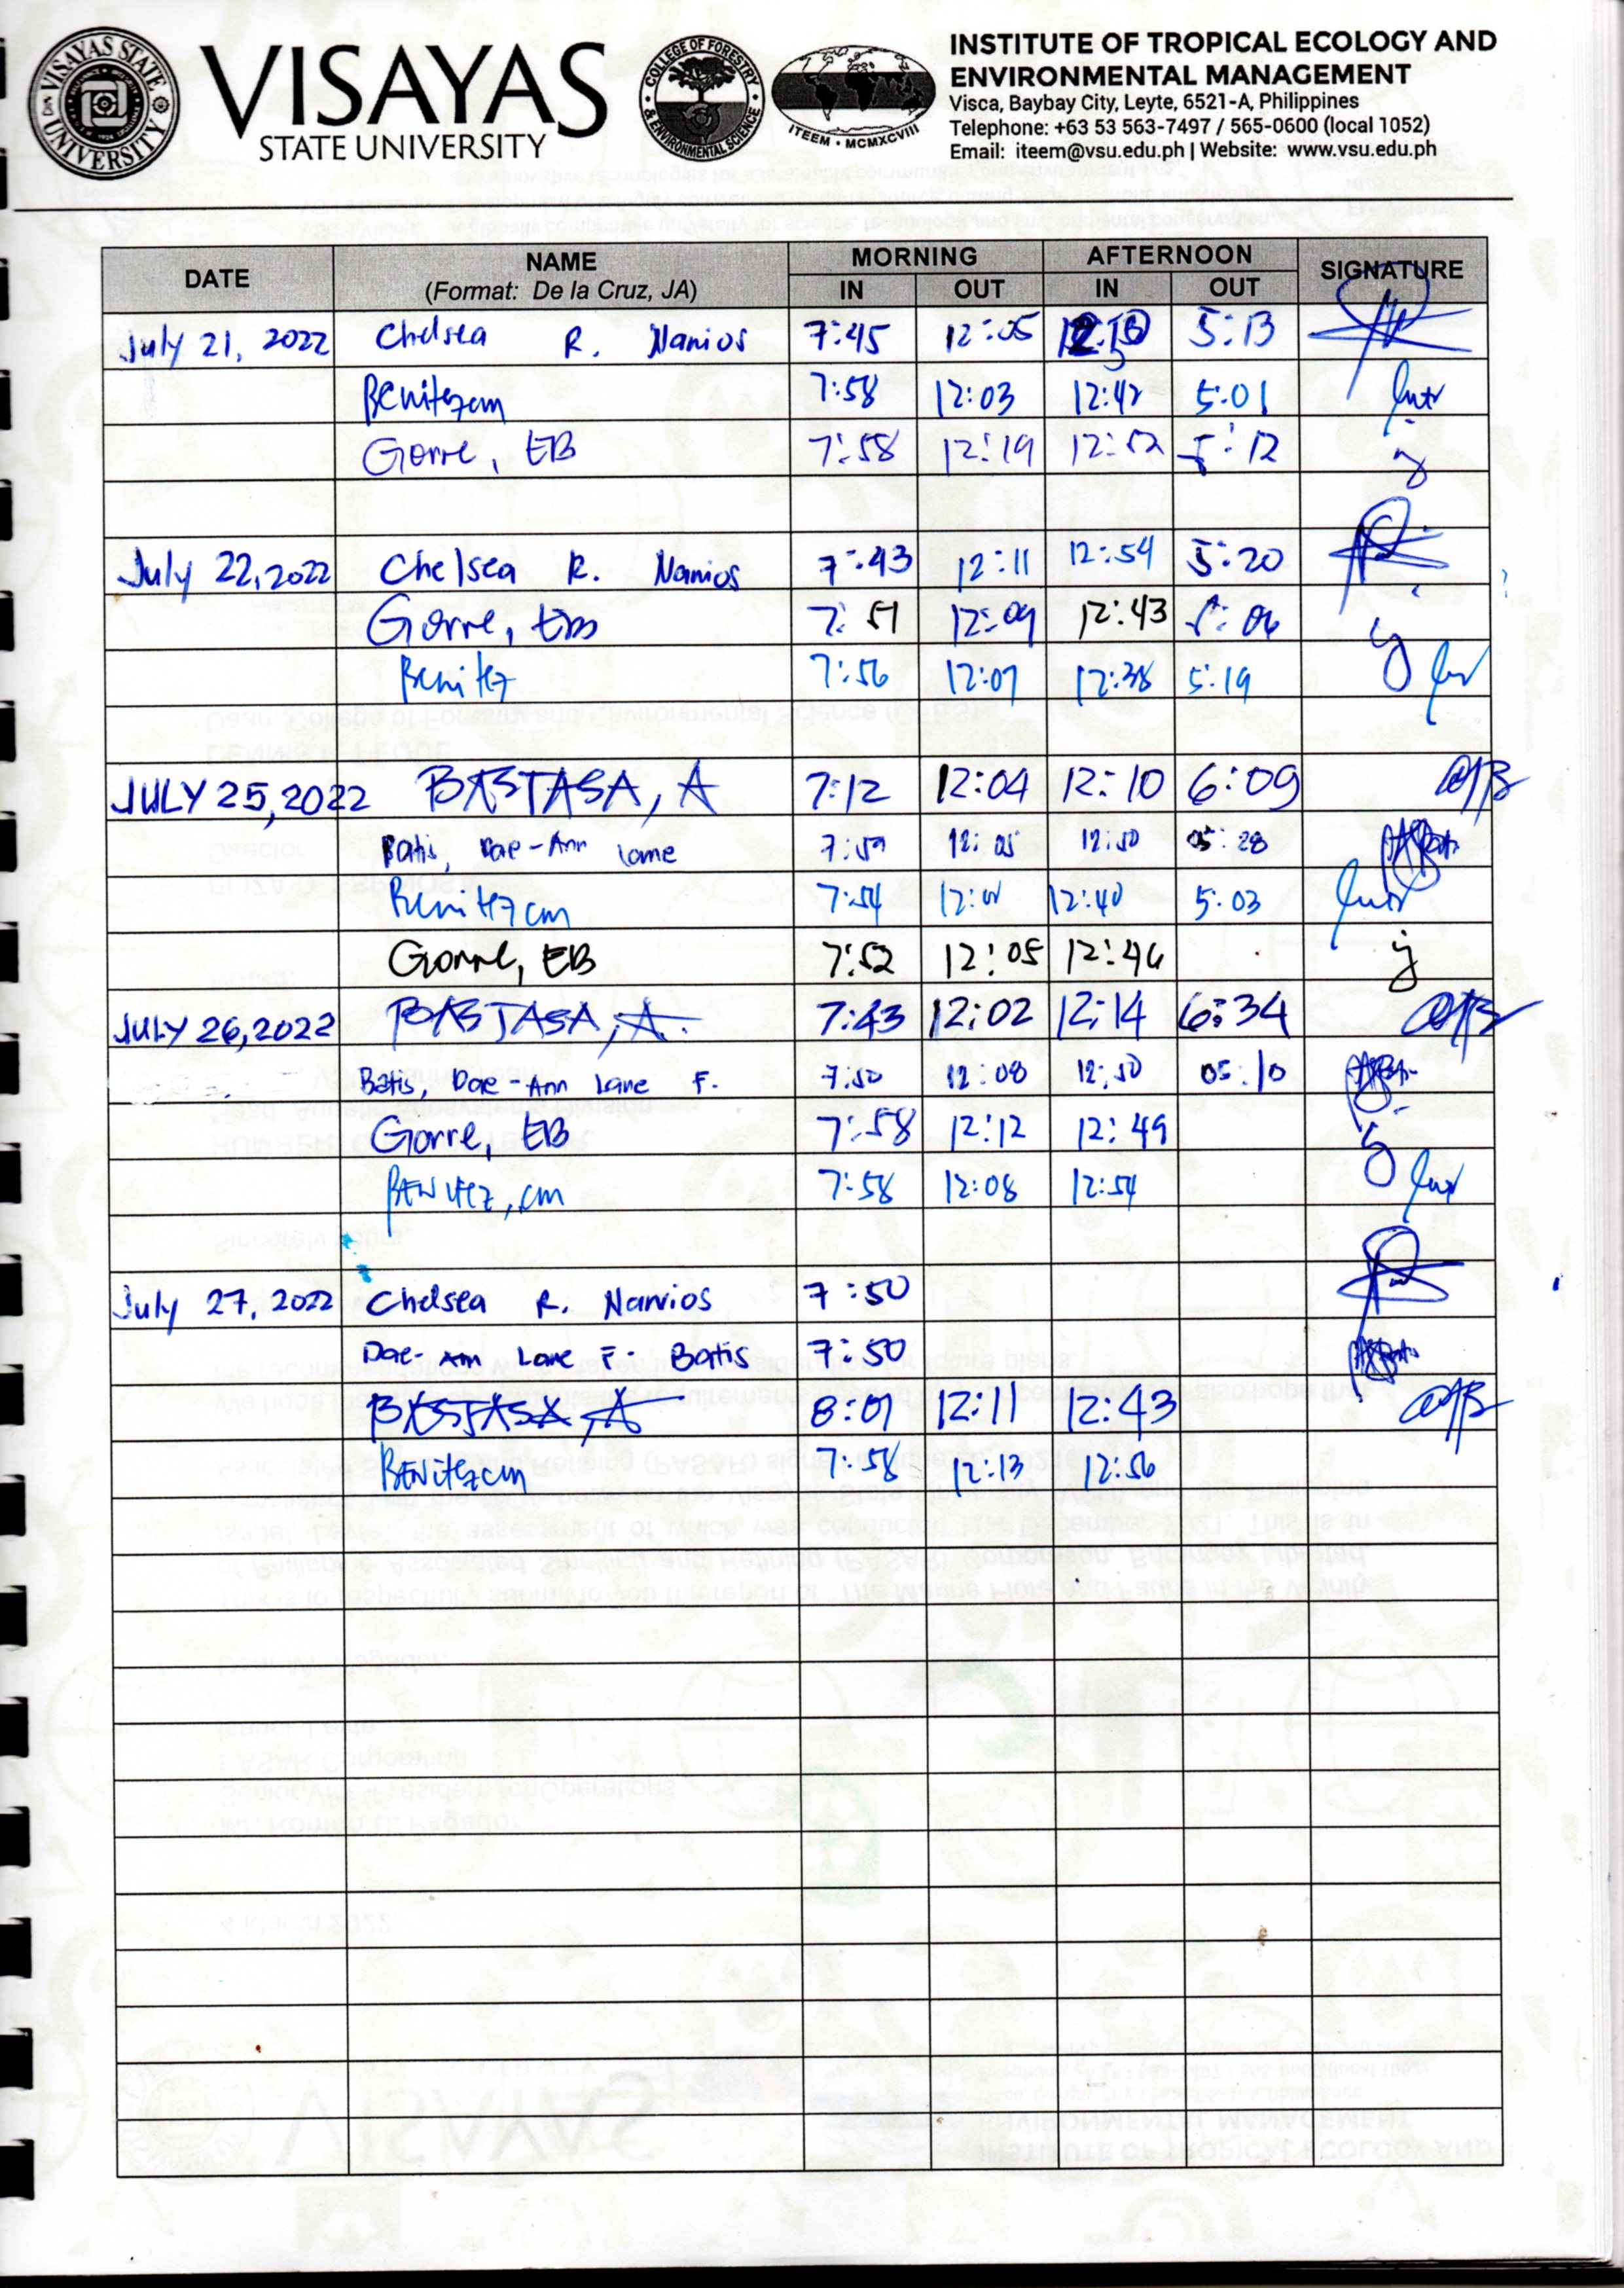 VISAYAS
STATE UNIVERSITY
VISAYAS STATE UNIVERSITY
COLLEGE OF FORESTRY & ENVIRONMENTAL SCIENCE
ITEEM • MCMXCVIII
INSTITUTE OF TROPICAL ECOLOGY AND
ENVIRONMENTAL MANAGEMENT
Visca, Baybay City, Leyte, 6521-A, Philippines
Telephone: +63 53 563-7497 / 565-0600 (local 1052)
Email: iteem@vsu.edu.ph | Website: www.vsu.edu.ph
DATE NAME MORNING AFTERNOON SIGNATURE
(Format: De la Cruz, JA) IN OUT IN OUT
July 21, 2022 Chelsea R. Nanios 7:45 12:05 5:13
Benitez cm 7:58 12:03 12:42 5:01
Gorre, EB 7:58 12:19 12:52 5:12
July 22, 2022 Chelsea R. Nanios 7:43 12:11 12:54 5:20
Gorre, EB 7:51 12:09 12:43 5:06
Benitez 7:56 12:07 12:38 5:19
JULY 25, 2022 BASTASA, A 7:12 12:04 12:10 6:09
Batis, Dae-Ann Lane 7:59 12:05 12:50 05:28
Benitez cm 7:54 12:40 5:03
Gorre, EB 7:52 12:05 12:46
JULY 26, 2022 BASTASA, A. 7:43 12:02 12:14 6:34
Batis, Dae-Ann Lane F. 7:50 12:08 12:50 05:10
Gorre, EB 7:58 12:12 12:49
BENITEZ, cm 7:58 12:08 12:54
July 27, 2022 Chelsea R. Nanios 7:50
Dae-Ann Lane F. Batis 7:50
BASTASA, A 8:01 12:11 12:43
BENITEZ cm 7:58 12:13 12:56